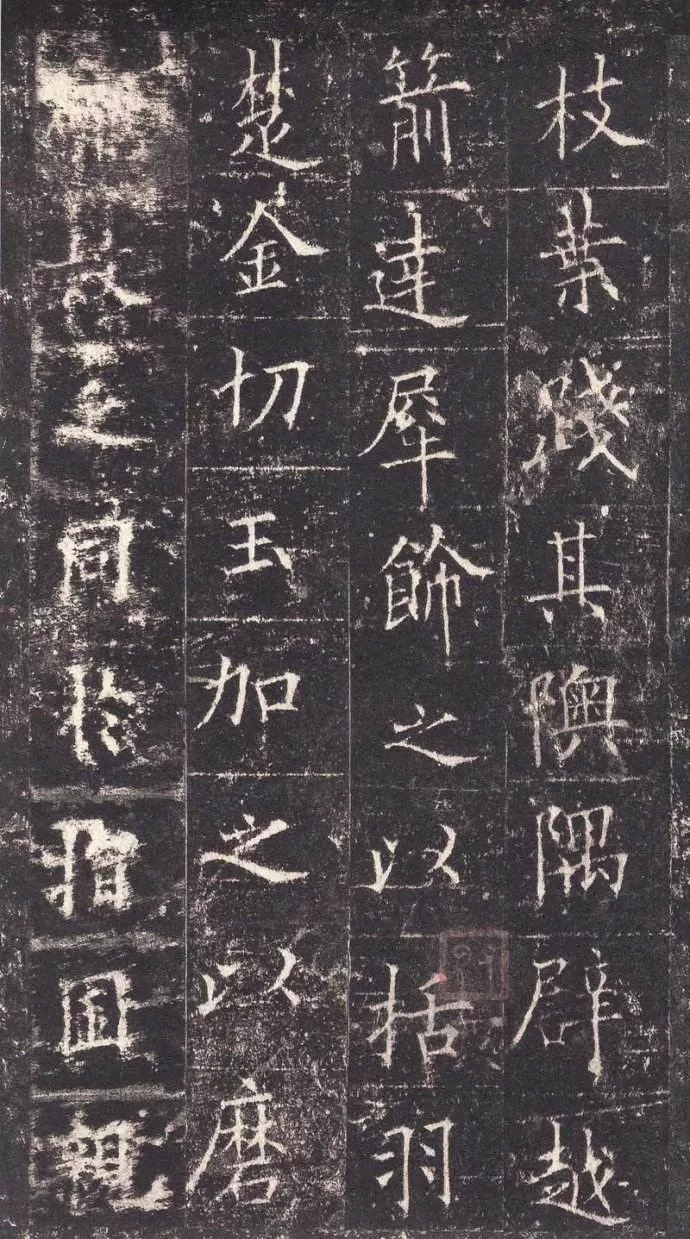 枝葉踐其隩隅辟越
箭達犀飾之以括羽
楚金切玉加之以磨
故之同於指囬親